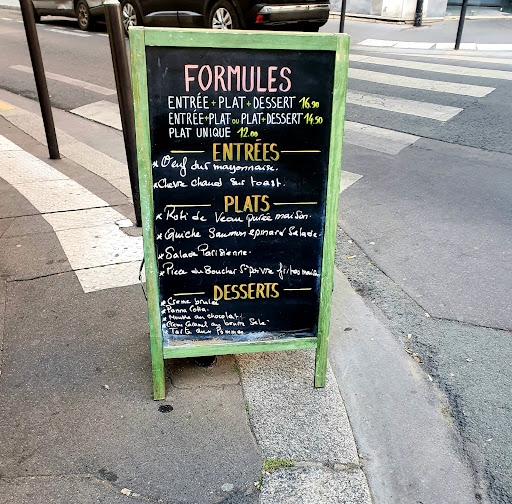 FORMULES
ENTRÉE+PLAT+DESSERT 16.90
ENTRÉE+PLAT OU PLAT+DESSERT 14.50
PLAT UNIQUE 12.00
ENTRÉES
* Oeuf dur mayonnaise.
* Chevre Chaud Sur toast.
PLATS
* Roti de Veau purée maison.
* Quiche Saumon epinard Salade
* Salade Parisienne.
* Piece du Boucher Sce poivre frites maison
DESSERTS
* Creme brulée
* Panna Cotta.
* Mousse au chocolat.
* Creme Caramel au beurre Salé
* Tarte aux Pommes